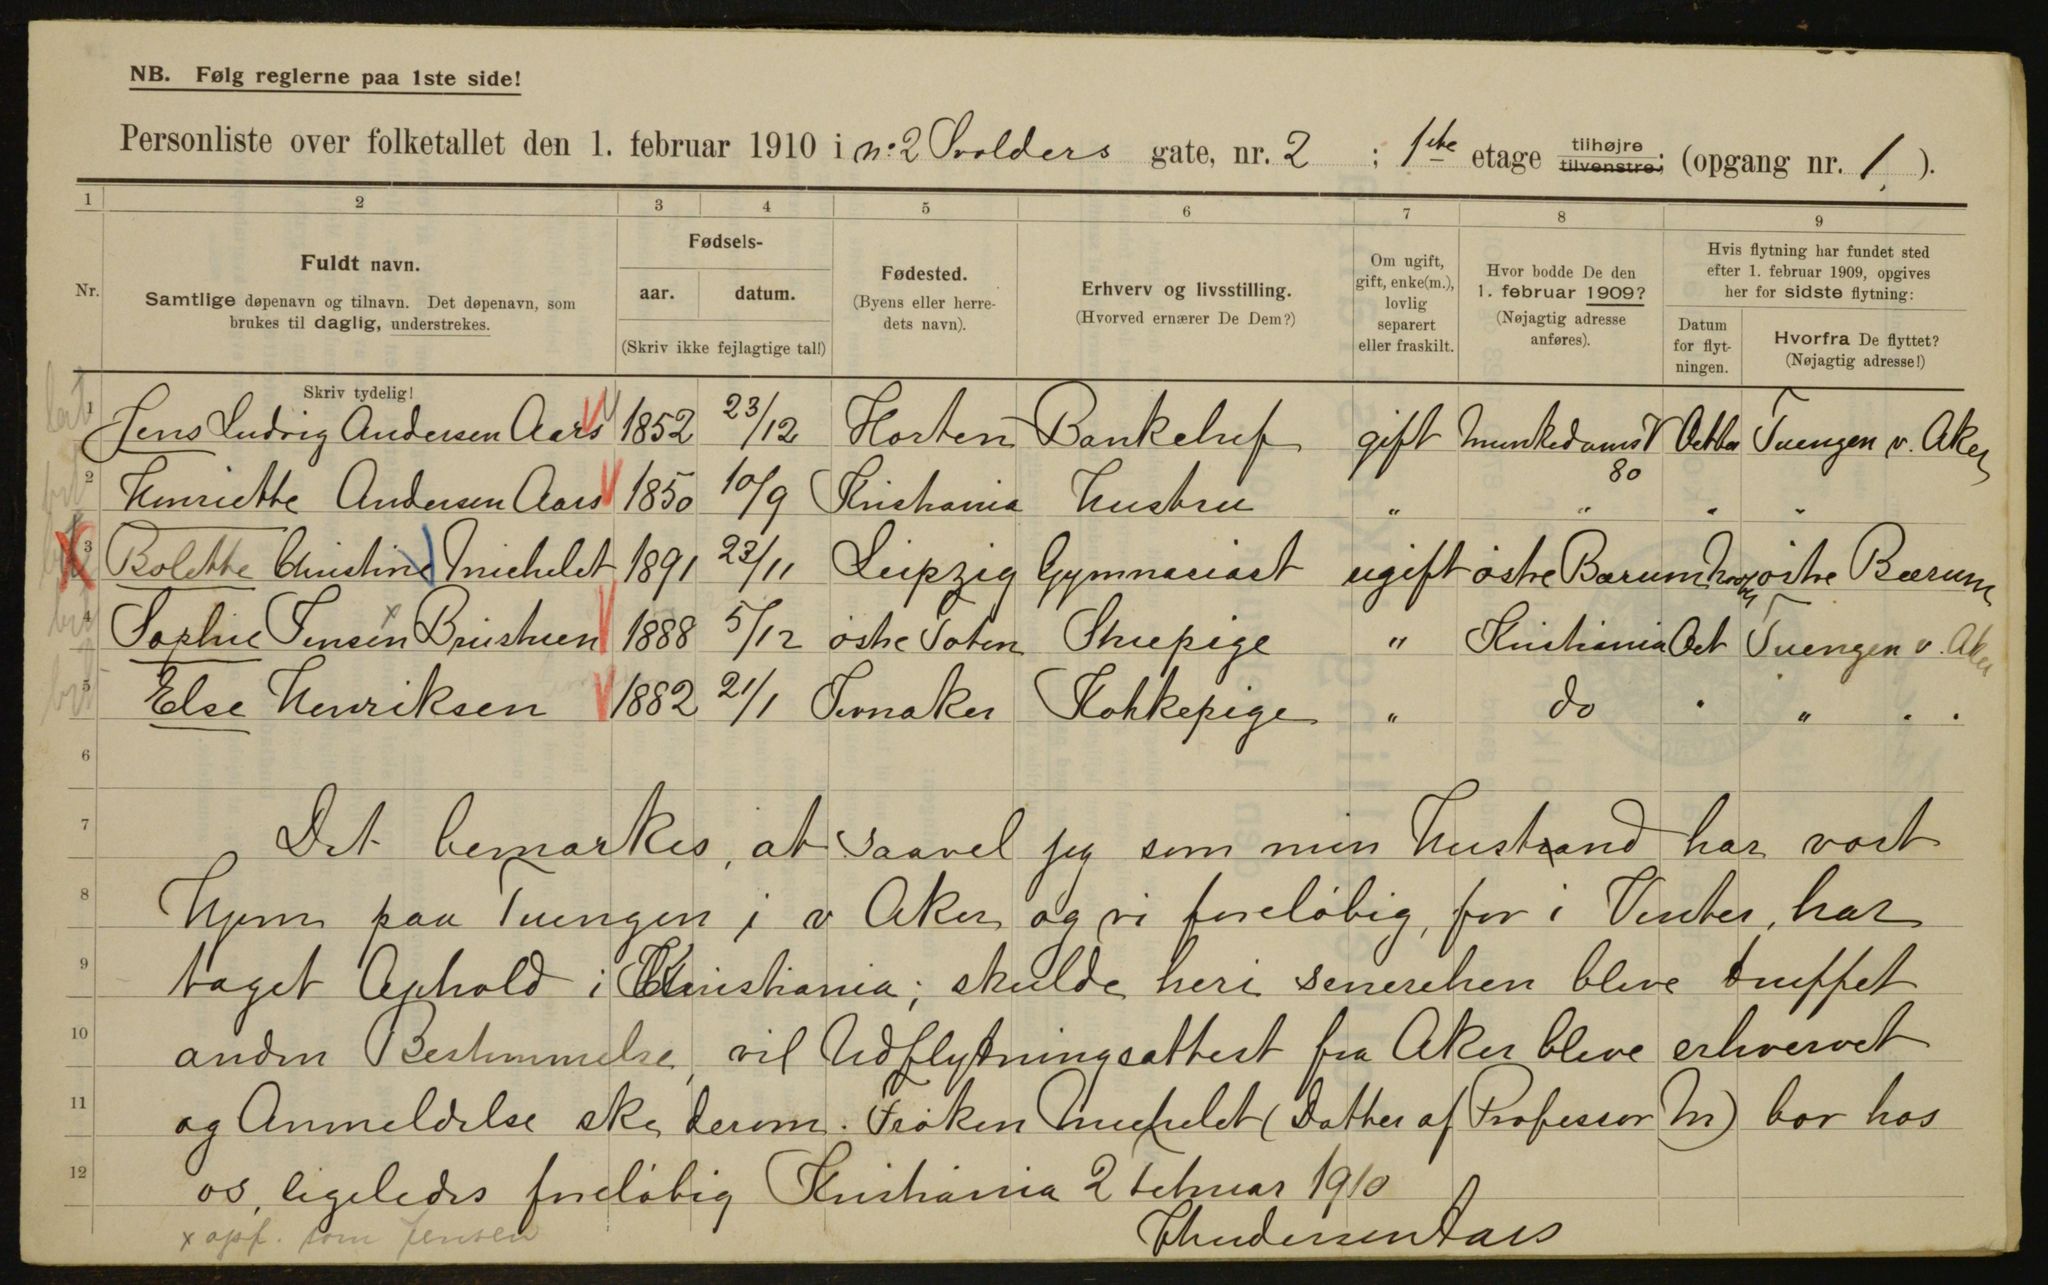 NB. Følg reglerne paa 1ste side!
Personliste over folketallet den 1. februar 1910 i no 2 Svolders gate, nr. 2 ; 1ste etage tilhøjre tilvenstre; (opgang nr. 1 ).
1 2 3 4 5 6 7 8 9
Nr. Fuldt navn. Samtlige døpenavn og tilnavn. Det døpenavn, som brukes til daglig, understrekes.
Fødsels- aar. datum. (Skriv ikke fejlagtige tal!)
Fødested. (Byens eller herredets navn).
Erhverv og livsstilling. (Hvorved ernærer De Dem?)
Om ugift, gift, enke(m.), lovlig separert eller fraskilt.
Hvor bodde De den 1. februar 1909? (Nøjagtig adresse anføres).
Hvis flytning har fundet sted efter 1. februar 1909, opgives her for sidste flytning:
Datum for flytningen. Hvorfra De flyttet? (Nøjagtig adresse!)
Skriv tydelig!
1 Jens Ludvig Andersen Aars 1852 23/12 Horten Bankchef gift Munkedams V 80 Octbr Tuengen v. Aker
2 Henriette Andersen Aars 1850 10/9 Kristiania Hustru " " " "
3 Bolette Christine Michelet 1891 23/11 Leipzig Gymnasiast ugift östre Bærum östre Bærum
4 Sophie Jensen x Brustuen 1888 5/12 östre Toten Stuepige " Kristiania Oct Tuengen v. Aker
5 Else Henriksen 1882 21/1 Jevnaker Kokkepige " do " " " "
6
7 Det bemærkes, at saavel jeg som min Hustrand har vort
8 Hjem paa Tuengen i v Aker og vi foreløbig, for i Vinter, har
9 taget Ophold i Kristiania; skulde heri senerehen blive truffet
10 anden Bestemmelse, vil Udflytningsattest fra Aker blive erhvervet
11 og Anmeldelse ske derom. Frøken Michelet (Datter af Professor M) bor hos
12 os, ligeledes foreløbig Kristiania 2 Februar 1910
x opf. som Jensen
JAndersenAars